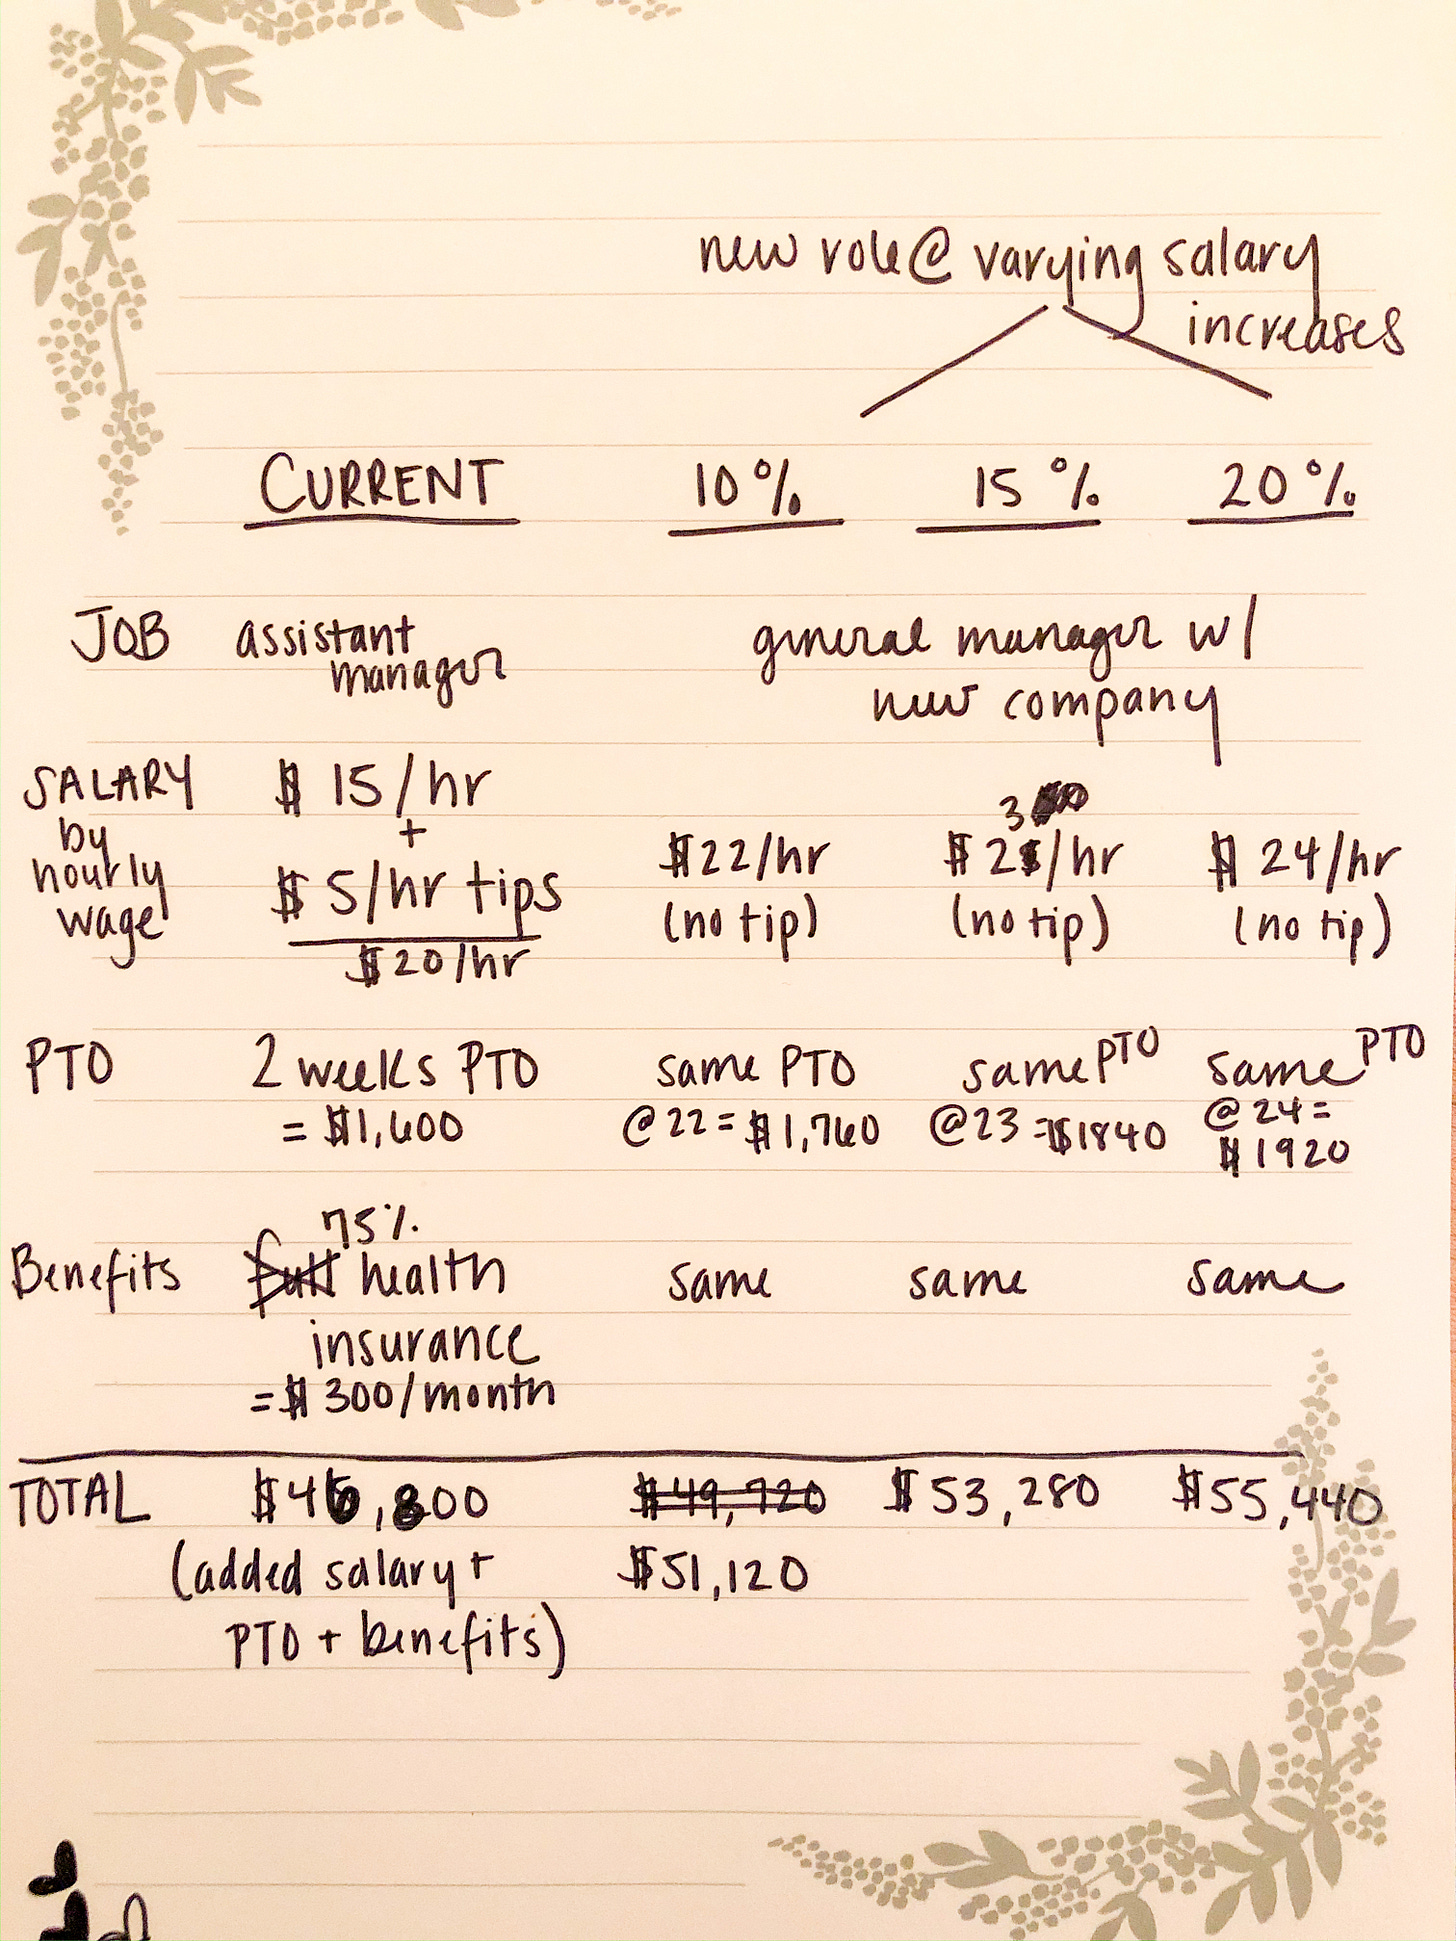 new role @ varying salary
increases
CURRENT 10% 15% 20%
JOB assistant manager general manager w/
new company
SALARY by hourly wage $15/hr
+
$5/hr tips
$20/hr
$22/hr $23/hr $24/hr
(no tip) (no tip) (no tip)
PTO 2 weeks PTO same PTO same PTO same PTO
= $1,600 @22 = $1,760 @23 = $1840 @ 24 =
$1920
75%
Benefits full health same same same
insurance
= $300/month
TOTAL $46,800 $49,720 $53,280 $55,440
(added salary + $51,120
PTO + benefits)